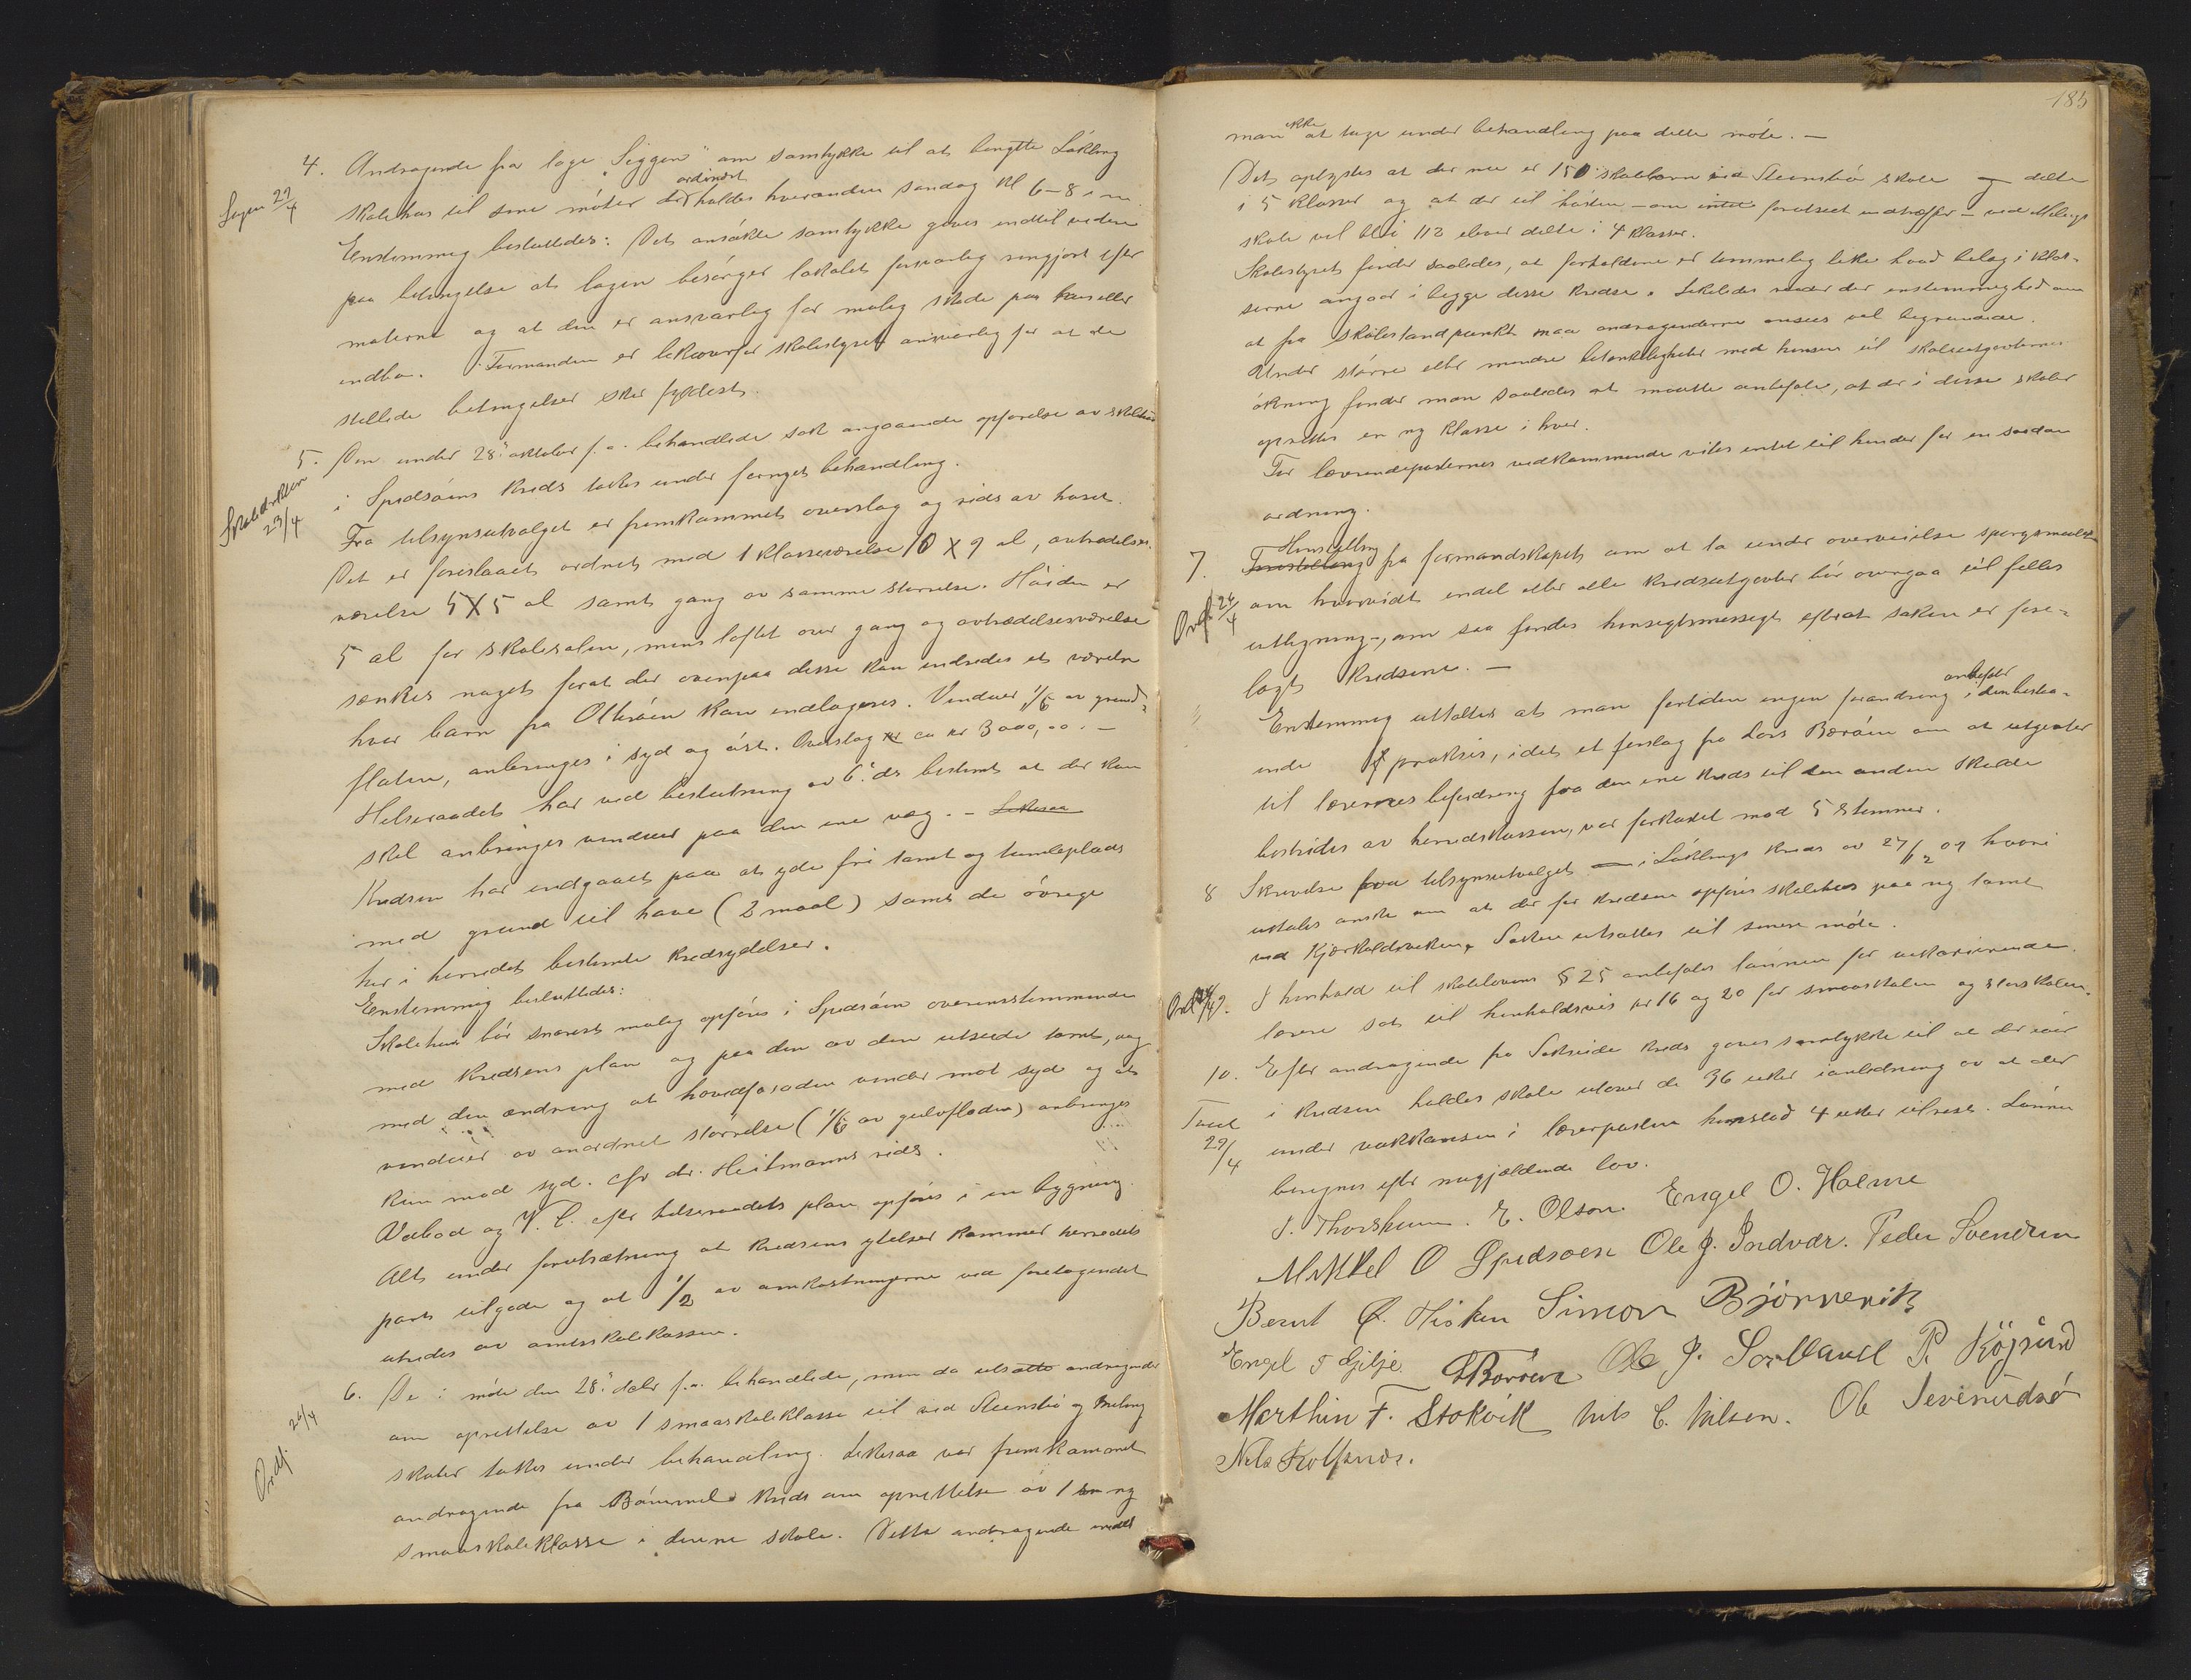 4. Andragende fra loge "Siggen" om samtykke til at benytte Løkling
Logen 29/4
skolehus til sine møter der ordinært holdes hveranden søndag kl 6-8 e m.
Enstemmig besluttedes: Det ansøkte samtykke gives indtil videre
paa betingelse at logen besørger lokalet forsvarlig rengjort efter
møterne og at den er ansvarlig for mulig skade paa hus eller
indbo. Formanden er likeoverfor skolestyret ansvarlig for at de
stillede betingelser sker fyldest.
5. Den under 28. oktober f. a. behandlede sak angaaende opførelse av skolehus
Skoledirektøren 23/4
i Spidsøens kreds tokes under fornyet behandling.
Fra tilsynsutvalget er fremkommet overslag og rids av huset.
Det er foreslaaet ordnet med 1 klasseværelse 10 X 9 al, avtrædelses-
værelse 5 X 5 al samt gang av samme størrelse. Høiden er
5 al for skolesalen, mens loftet over gang og avtrædelsesværelse
sænkes noget forat der ovenpaa disse kan indredes et værelse
hvor barn fra Olterøen kan indlogeres. Vinduer 1/6 av grund-
flaten, anbringes i syd og øst. Overslag ca kr 3000,00. -
Helseraadet har ved beslutning av 6. ds bestemt at der kun
skal anbringes vinduer paa den ene væg. - Likesaa
Kredsen har indgaaet paa at yde fri tomt og tumleplads
med grund til have (2 maal) samt de øvrige
her i herredet bestemte kredsydelser.
Enstemmig besluttedes:
Skolehus bør snarest mulig opføres i Spidsøen overensstemmende
med kredsens plan og paa den av den utseede tomt, dog
med den ændring at hovedfasaden vender mot syd og at
vinduer av anordnet størrelse (1/6 av gulvfladen) anbringes
kun mod syd. cfr dr. Heitmanns rids.
Vedbod og W. C. efter helseraadets plan opføres i en bygning.
Alt under forutsætning at kredsens ytelser kommer herredets
part tilgode og at 1/2 av omkostningerne ved foretagendet
utredes av amtsskolekassen.
6. De i møte den 28. oktbr f. a. behandlede, men da utsatte andragender
Ordf. 26/4
om oprettelse av 1 smaaskoleklasse til ved Steensbø og Meling
skoler tokes under behandling. Likesaa var fremkommet
andragende fra Bømmel kreds om oprettelse av 1 ny
smaaskoleklasse i denne skole. Dette andragende vedtok
185
man ikke at tage under behandling paa dette møte. -
Det oplystes at der nu er 150 skolebarn ved Steensbø skole og delte
i 5 klasser og at der til høsten - om intet forutseet indtræffer - ved Melings
skole vil bli 112 elever delte i 4 klasser.
Skolestyret finder saaledes, at forholdene er temmelig like hvad belæg i klas-
serne angaar i begge disse kredse. Likeledes raader der enstemmighed om
at fra skolestandpunkt maa andragenderne ansees vel begrundede.
Under større eller mindre betænkeligheter med hensyn til skoleutgifternes
økning finder man saaledes at maatte anbefale, at der i disse skoler
oprettes en ny klasse i hver.
For lærerindeposternes vedkommende vites intet til hinder for en saadan
ordning.
7. Forestilling Henstilling fra formandskapet om at ta under overveielse spørgsmaalet
Ordf. 26/4
om hvorvidt endel eller alle kredsutgifter bør overgaa til fælles
utligning, om saa findes hensigtsmæssigt efterat saken er fore-
lagt kredsene. -
Enstemmig uttaltes at man fortiden ingen forandring anbefaler i den bestaa-
ende praksis, idet et forslag fra Lars Børøen om at utgifter
til lærernes befordring fra den ene kreds til den anden skulde
bestrides av herredskassen, var forkastet mod 5 stemmer.
8 Skrivelse fra tilsynsutvalget i Løklings kreds av 27/12 09 hvori
uttales ønske om at der for kredsen opføres skolehus paa ny tomt
ved Kjørkoldsvaken. Saken utsattes til senere møte.
Ordf 26/4 9. I henhold til skolelovens § 25 anbefales lønnen for vikarierende
lærere sat til henholdsvis kr 16 og 20 for smaaskolen og storskolen.
10. Efter andragende fra Sakseide kreds gives samtykke til at der iaar
Tveit 29/4
i kredsen holdes skole utover de 36 uker i anledning av at der
under vakkansen i lærerposten henstod 4 uker tilrest. Lønnen
beregnes efter nugjældende lov.
E. Olson. Engel O. Holme
Mikkel O Spidsoen Ole J. Indvær. Peder Svendsen
Bernt Hisken Simon Bjørnevik
Engel T Gilje LBorøen Ole J. Sortland P. Røgsund
Marthin F. Stokvik Nils C. Nilsen. Ole Severindsø
Nils Rolfsnæs.